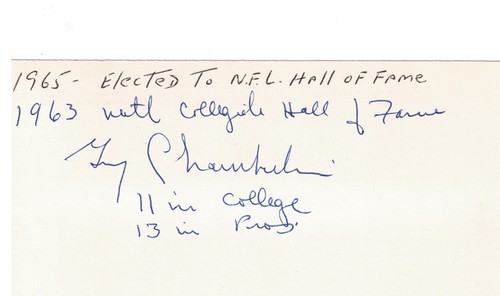 1965- Elected To N.F.L. Hall of Fame
1963 Natl Collegiate Hall of Fame
Guy Chamberlin
11 in College
13 in Pros.